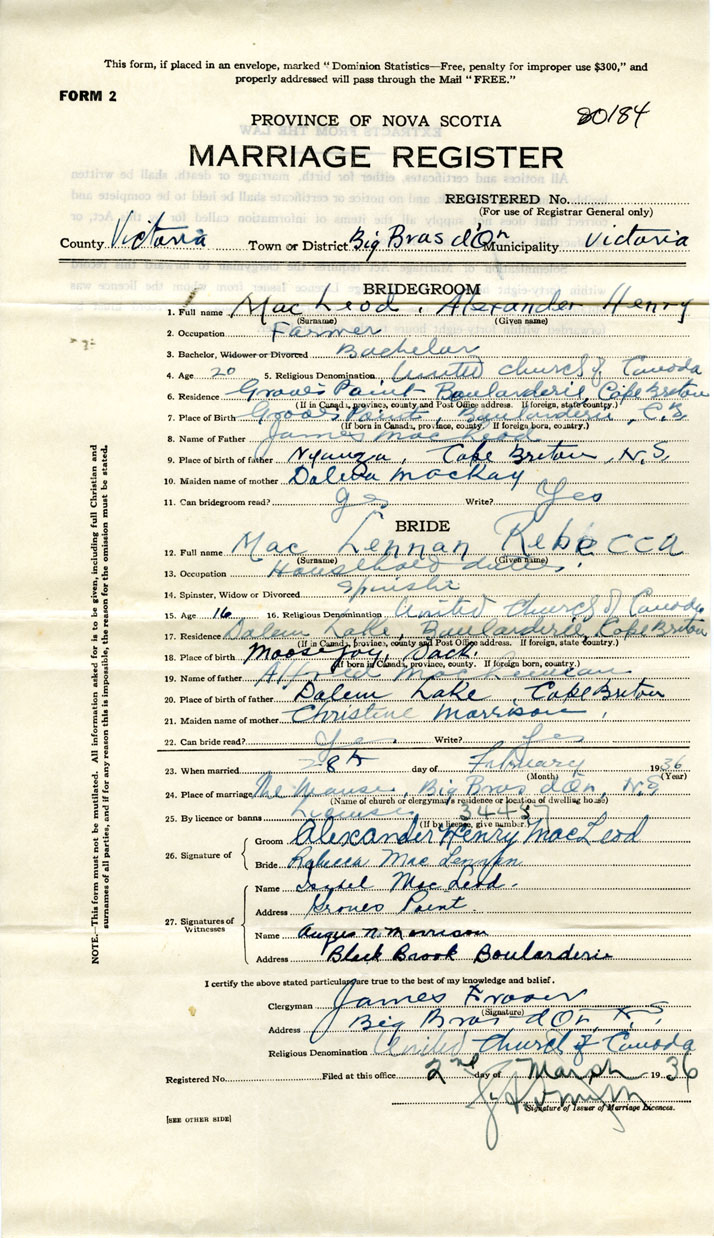 This form, if placed in an envelope, marked "Dominion Statistics—Free, penalty for improper use $300," and
properly addressed will pass through the Mail "FREE."
FORM 2
PROVINCE OF NOVA SCOTIA 20184
MARRIAGE REGISTER
REGISTERED No.
(For use of Registrar General only)
County Victoria Town or District Big Bras d'Or Municipality Victoria
BRIDEGROOM
1. Full name MacLeod, Alexander Henry
(Surname) (Given name)
2. Occupation Farmer
3. Bachelor, Widower or Divorced Bachelor
4. Age 20 5. Religious Denomination United Church of Canada
6. Residence Groves Point Boularderie Cape Breton
(If in Canada, province, county and Post Office address. If foreign, state country.)
7. Place of Birth Groves Point, Boularderie, C.B.
(If born in Canada, province, county. If foreign born, country.)
8. Name of Father James MacLeod
9. Place of birth of father Nyanza, Cape Breton, N.S.
10. Maiden name of mother MacKay
11. Can bridegroom read? yes Write? Yes
BRIDE
12. Full name Mac Lennan Rebecca
(Surname) (Given name)
13. Occupation Household duties
14. Spinster, Widow or Divorced Spinster
15. Age 16 16. Religious Denomination United Church of Canada
17. Residence Dalem Lake, Boularderie, Cape Breton
(If in Canada, province, county and Post Office address. If foreign, state country.)
18. Place of birth Moose Jaw, Sack.
(If born in Canada, province, county. If foreign born, country.)
19. Name of father Alfred MacLennan
20. Place of birth of father Dalem Lake, Cape Breton
21. Maiden name of mother Christine Morrison,
22. Can bride read? Yes Write? Yes
23. When married 28th day of February 1936
(Month) (Year)
24. Place of marriage The Manse, Big Bras d'Or, N.S.
(Name of church or clergyman's residence or location of dwelling house)
25. By licence or banns License 34487
(If by licence, give number.)
26. Signature of
Groom Alexander Henry MacLeod
Bride Rebecca Mac Lennan
27. Signatures of Witnesses
Name Mac Leod.
Address Groves Point.
Name Angus N. Morrison
Address Black Brook Boularderie
I certify the above stated particulars are true to the best of my knowledge and belief.
Clergyman James Fraser
(Signature)
Address Big Bras d'Or, N.S.
Religious Denomination United Church of Canada
Registered No. Filed at this office 2nd day of March 1936
Signature of Issuer of Marriage Licences.
[SEE OTHER SIDE]
NOTE.—This form must not be mutilated. All information asked for is to be given, including full Christian and
surnames of all parties, and if for any reason this is impossible, the reason for the omission must be stated.